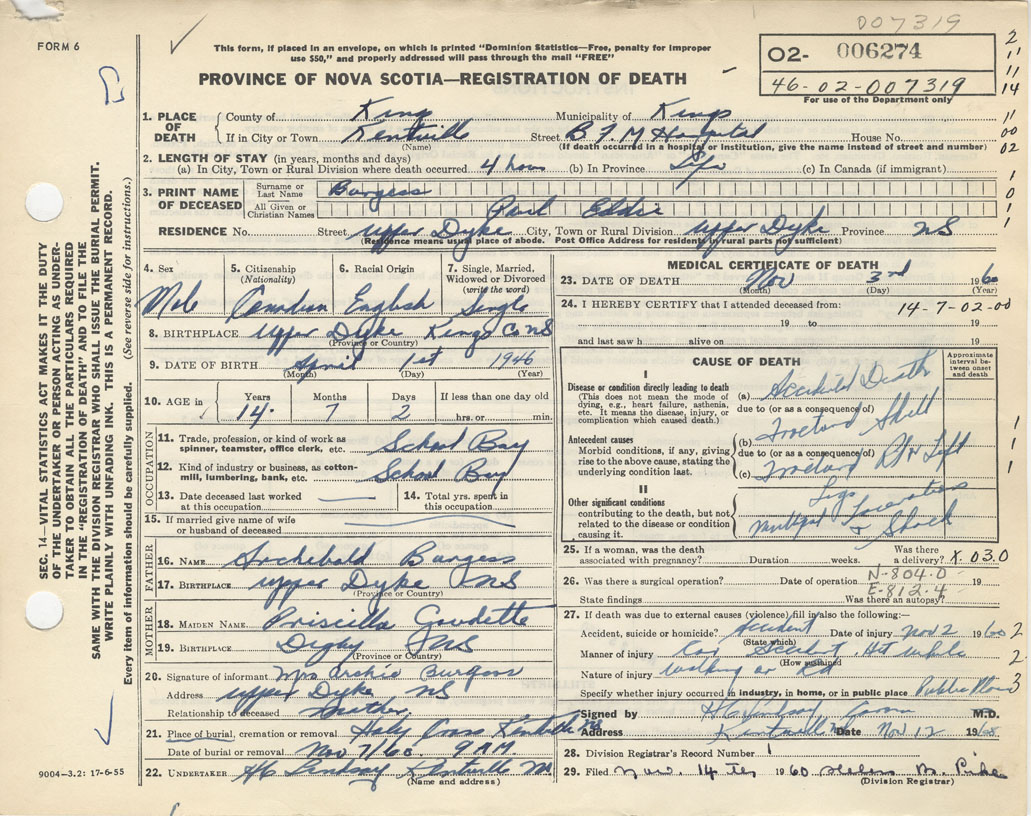 007319
FORM 6
This form, if placed in an envelope, on which is printed "Dominion Statistics—Free, penalty for improper
use $50," and properly addressed will pass through the mail "FREE"
02- 006274
46-02-007319
For use of the Department only
PROVINCE OF NOVA SCOTIA—REGISTRATION OF DEATH
2
11
11
14
11
00
02
1. PLACE OF DEATH County of King Municipality of Kings
If in City or Town Kentville Street B F M Hospital House No.
(Name) (If death occurred in a hospital or institution, give the name instead of street and number)
2. LENGTH OF STAY (in years, months and days)
(a) In City, Town or Rural Division where death occurred 4 hours (b) In Province Life (c) In Canada (if immigrant)
3. PRINT NAME OF DECEASED Surname or Last Name Burgess
All Given or Christian Names Eddie
1
0
1
RESIDENCE No. Street Upper Dyke City, Town or Rural Division Upper Dyke Province NS
(Residence means usual place of abode. Post Office Address for residents in rural parts not sufficient)
4. Sex 5. Citizenship (Nationality) 6. Racial Origin 7. Single, Married, Widowed or Divorced (write the word)
Male Canadian English Single
8. BIRTHPLACE Upper Dyke Kings Co NS
(Province or Country)
9. DATE OF BIRTH April 1st 1946
(Month) (Day) (Year)
10. AGE in Years Months Days If less than one day old
14 7 2 hrs. or min.
OCCUPATION
11. Trade, profession, or kind of work as spinner, teamster, office clerk, etc. School Boy
12. Kind of industry or business, as cotton-mill, lumbering, bank, etc. School Boy
13. Date deceased last worked at this occupation
14. Total yrs. spent in this occupation
15. If married give name of wife or husband of deceased
FATHER
16. NAME Archibald Burgess
17. BIRTHPLACE Upper Dyke NS
(Province or Country)
MOTHER
18. MAIDEN NAME Priscilla Goudette
19. BIRTHPLACE Digby NS
(Province or Country)
20. Signature of informant Mrs Archie Burgess
Address Upper Dyke NS
Relationship to deceased Mother
21. Place of burial, cremation or removal Holy Cross Kentville NS
Date of burial or removal Nov 7/60 9 AM
22. UNDERTAKER H C Lindsay Kentville NS
(Name and address)
MEDICAL CERTIFICATE OF DEATH
23. DATE OF DEATH Nov 3rd 1960
(Month) (Day) (Year)
24. I HEREBY CERTIFY that I attended deceased from: 14-7-02-00
19 to 19
and last saw h alive on 19
CAUSE OF DEATH
Approximate interval between onset and death
I
Disease or condition directly leading to death
(This does not mean the mode of dying, e.g., heart failure, asthenia, etc. It means the disease, injury, or complication which caused death.)
(a) Death
due to (or as a consequence of)
Antecedent causes
Morbid conditions, if any, giving rise to the above cause, stating the underlying condition last.
(b) Skull
due to (or as a consequence of)
(c) Left
Legs
II
Other significant conditions contributing to the death, but not related to the disease or condition causing it.
& Shock
1
1
1
25. If a woman, was the death associated with pregnancy? Duration weeks. Was there a delivery? X.030
26. Was there a surgical operation? Date of operation 19
N-804.0
E-812.4
State findings Was there an autopsy?
27. If death was due to external causes (violence) fill in also the following:—
Accident, suicide or homicide? Accident Date of injury Nov 2 1960 2
(State which)
Manner of injury Car Hit while 2
(How sustained)
Nature of injury walking on
Specify whether injury occurred in industry, in home, or in public place Public 3
Signed by H C Lindsay M.D.
Address Kentville Date Nov 12 1960
28. Division Registrar's Record Number 1
29. Filed Nov. 14 1960 Helen M. Pike
(Division Registrar)
SEC. 14—VITAL STATISTICS ACT MAKES IT THE DUTY
OF THE UNDERTAKER OR PERSON ACTING AS UNDER-
TAKER TO OBTAIN ALL THE PARTICULARS REQUIRED
IN THE "REGISTRATION OF DEATH" AND TO FILE THE
SAME WITH THE DIVISION REGISTRAR WHO SHALL ISSUE THE BURIAL PERMIT.
WRITE PLAINLY WITH UNFADING INK. THIS IS A PERMANENT RECORD.
Every item of information should be carefully supplied. (See reverse side for instructions.)
9004-3.2: 17-6-55